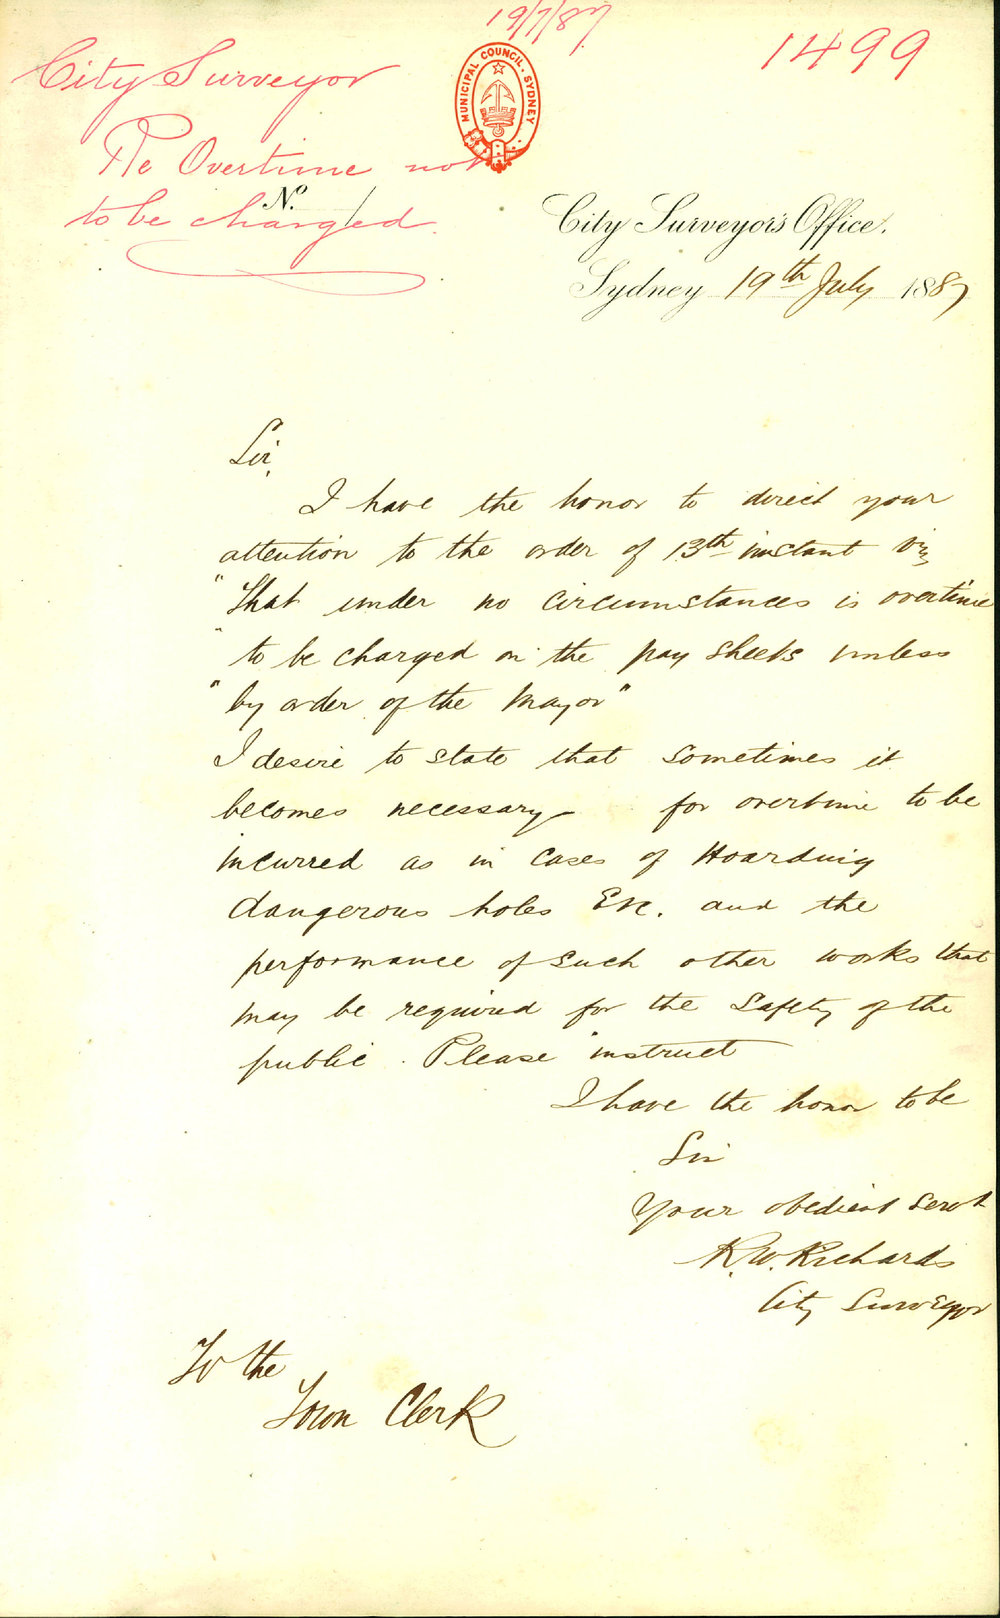 19/7/87.
1499
City Surveyor
Re Overtime not
to be charged.
MUNICIPAL COUNCIL. SYDNEY
No.
City Surveyor's Office.
Sydney 19th July 1887
Sir,
I have the honor to direct your
attention to the order of 13th instant viz
"That under no circumstances is overtime
"to be charged on the pay sheets unless
"by order of the Mayor"
I desire to state that sometimes it
becomes necessary for overtime to be
incurred as in cases of Hoarding
dangerous holes Etc. and the
performance of such other works that
may be required for the safety of the
public. Please instruct
I have the honor to be
Sir
Your obedient Servt
R.W. Richards
City Surveyor
To the
Town Clerk